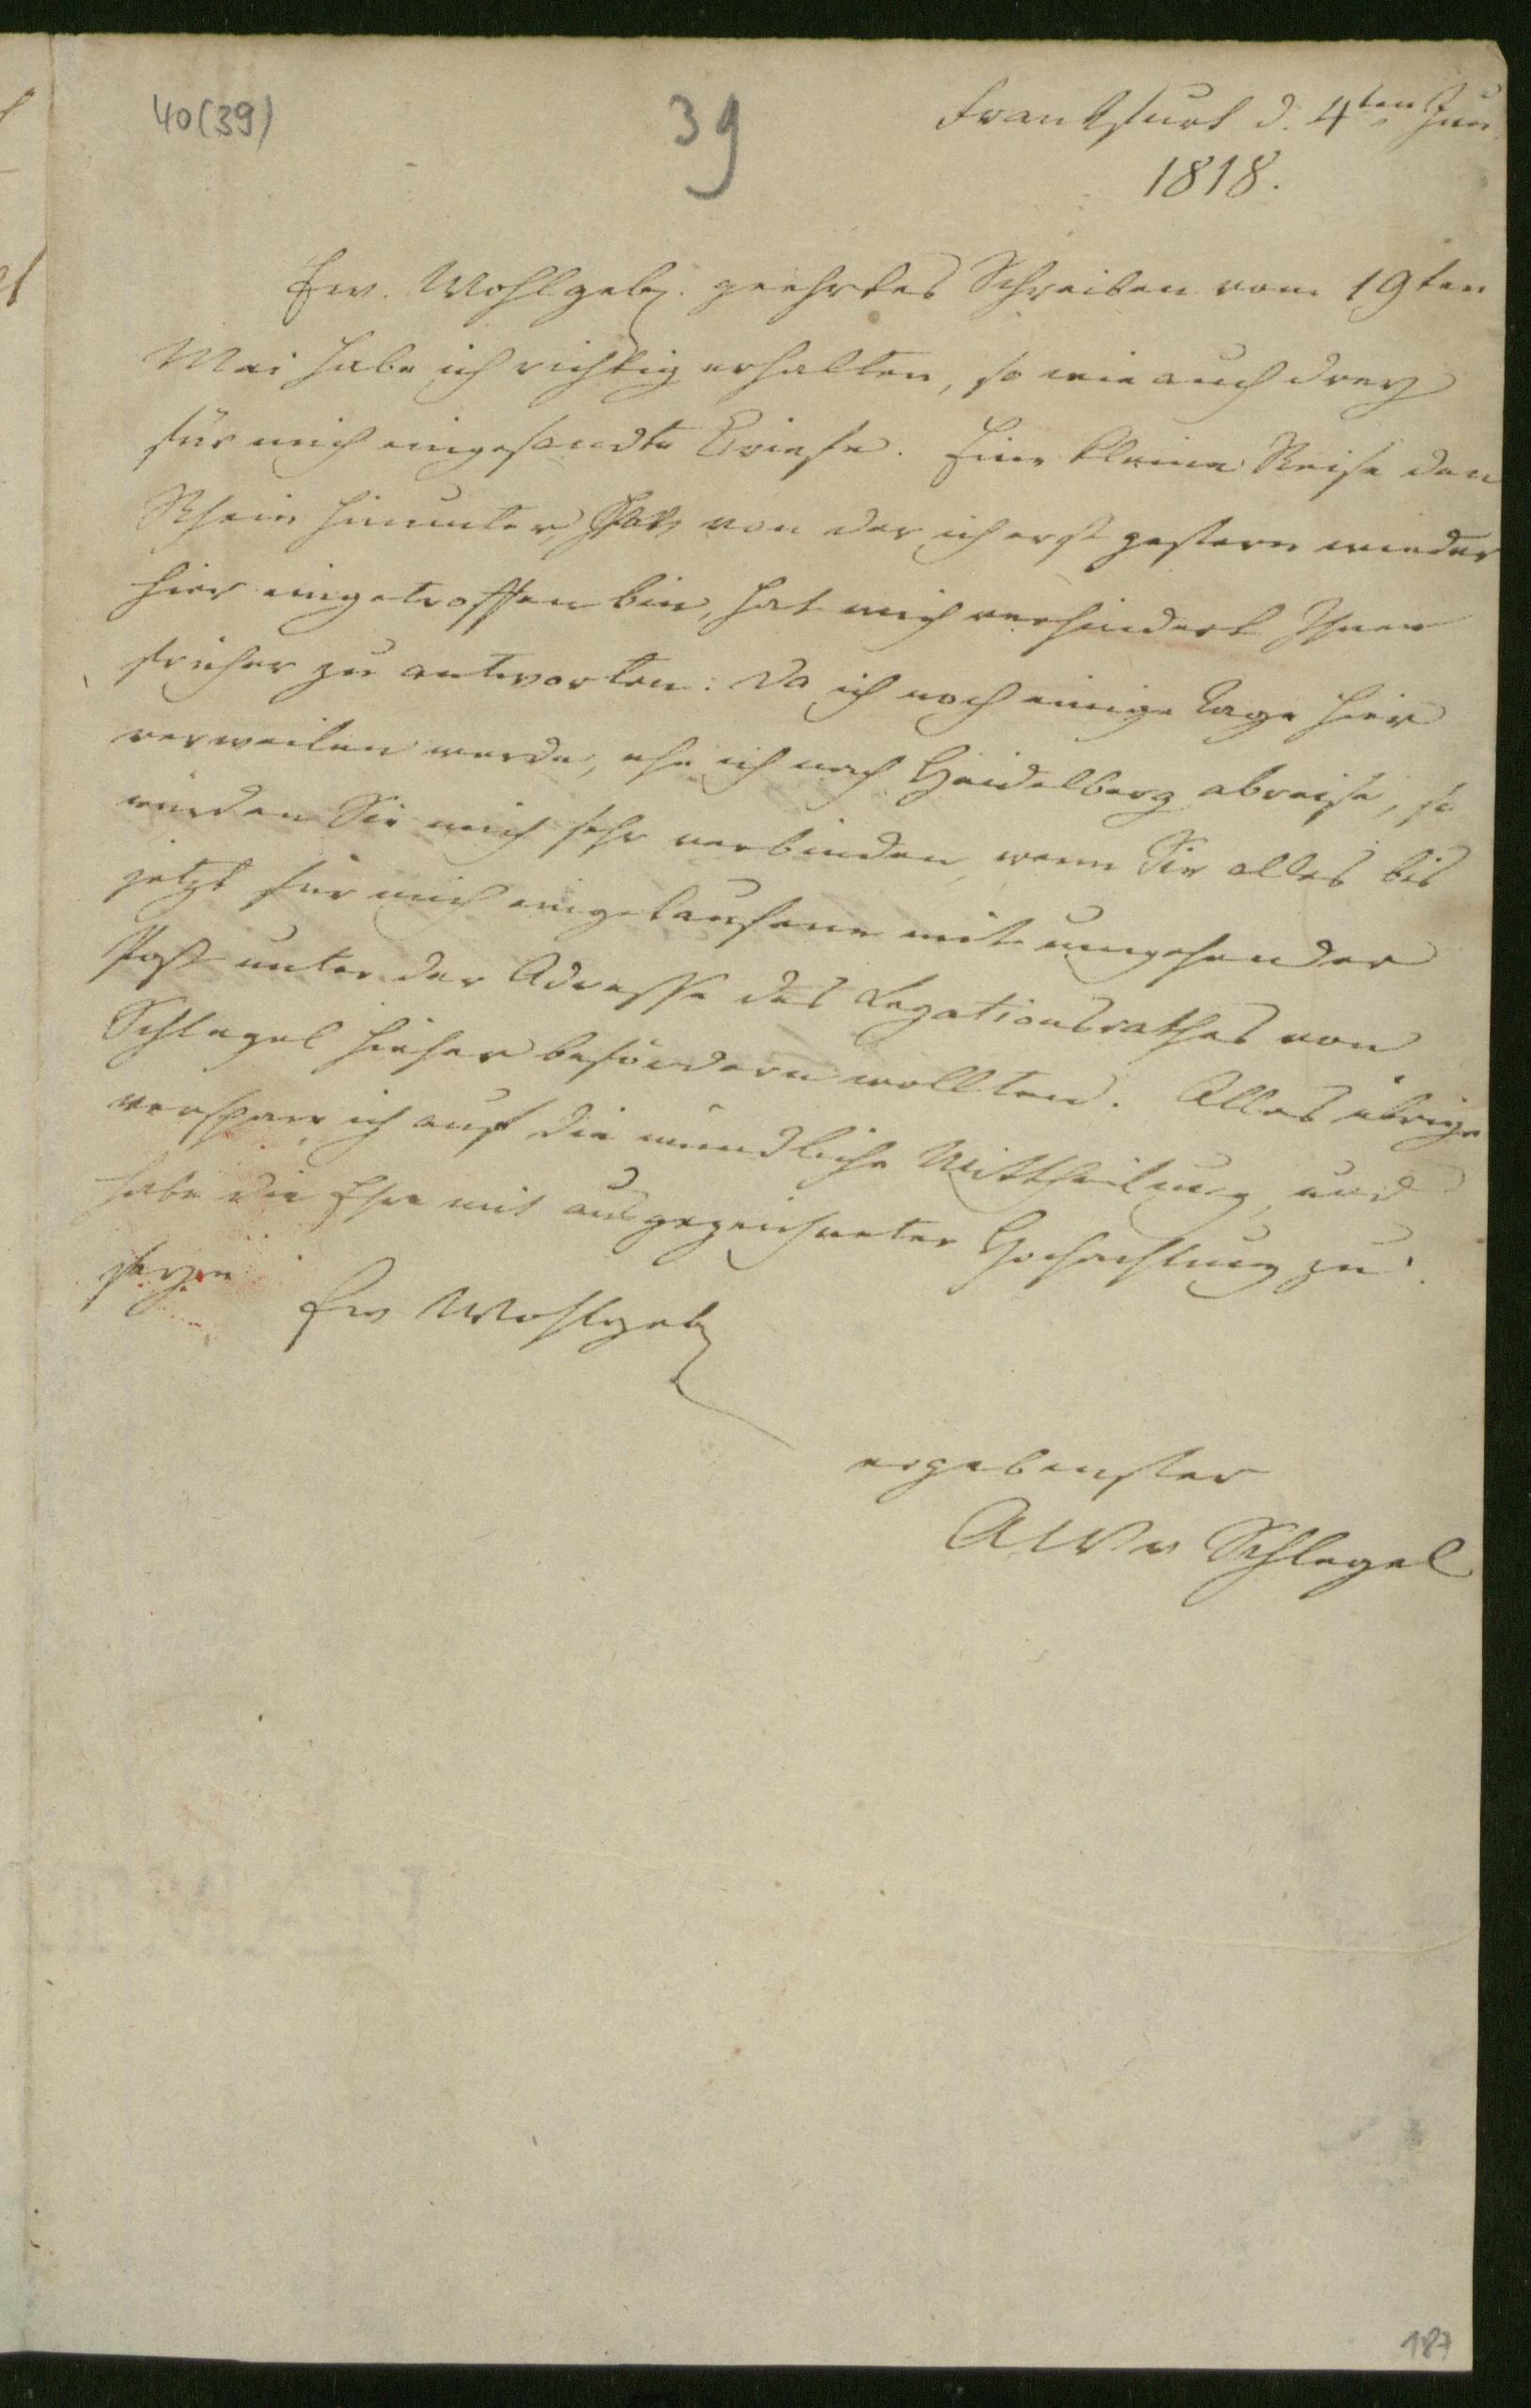 40(39)
39
Frankfurt d. 4ten Jun
1818.
Ew. Wohlgeb. geehrtes Schreiben vom 19ten
Mai habe ich richtig erhalten, so wie auch drey
für mich eingesandte Briefe. Eine kleine Reise den
Rhein hinunter, von der ich erst gestern wieder
hier eingetroffen bin, hat mich verhindert Ihnen
früher zu antworten. Da ich noch einige Tage hier
verweilen werde, ehe ich nach Heidelberg abreise, so
würden Sie mich sehr verbinden, wenn Sie alles bis
jetzt für mich eingelaufene mit umgehender
Post unter der Adresse des Legationsrathes von
Schlegel hieher befördern wollten. Alles übrige
verspare ich auf die mündliche Mittheilung, und
habe die Ehre mit ausgezeichneter Hochachtung zu
seyn
Ew Wohlgeb
ergebenster
AW v Schlegel
187